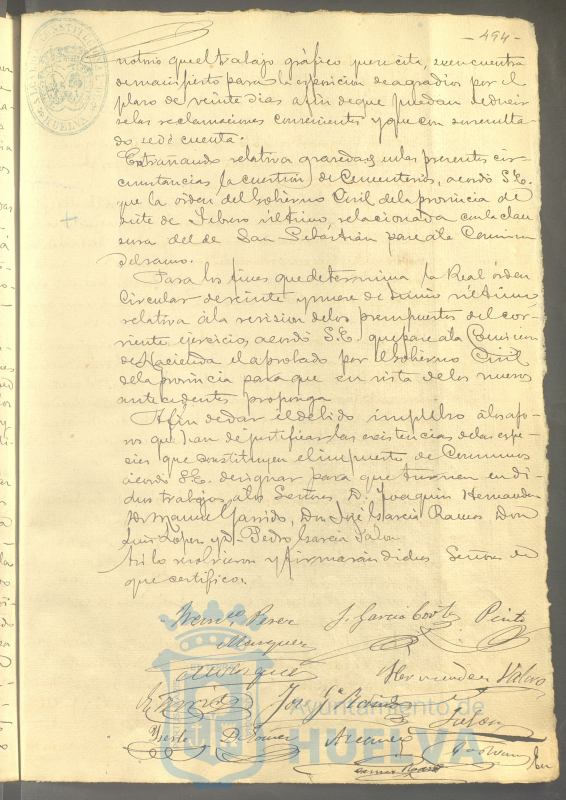 - 494 -
notorio que el trabajo gráfico que se cita, se encuentra
de manifiesto para la esposicion de agravios por el
plazo de veinte dias a fin de que puedan deducir
se las reclamaciones convenientes y que con su resulta-
do se dé cuenta.
Entrañando relativa gravedad en las presentes cir-
cunstancias la cuestion de Cementerios, acordó S.E.
que la orden del Gobierno Civil de la provincia de
siete de Febrero último, relacionada con la clau
sura del de San Sebástián pase á la Comision
del ramo.
Para los fines que determina la Real órden
Circular de veinte y nueve de Junio último
relativa á la revision de los presupuestos del cor-
riente ejercicio, acordó S.E. que pase a la Comision
de Hacienda el aprobado por el Gobierno Civil
de la provincia para que en vista de los nuevos
antecedentes proponga
A fin de dar el debido impulso á los afo-
ros que han de justificar las existencias de las espe-
cies que constituyen el impuesto de Consumos
acordó S.E. designar para que turnen en di-
chos trabajos, a los Señores D. Joaquin Hernandez
D. Manuel Garrido, Don José Garcia Ramos Don
Luis Lopez y D. Pedro Garcia Jalon
Asi lo resolvieron y firmarán dichos Señores de
que certifico.
Perez J. Garcia Pinto
Marquez
Hernandez Valero
Jose Gª
Jalon
Ayuntamiento de
HUELVA